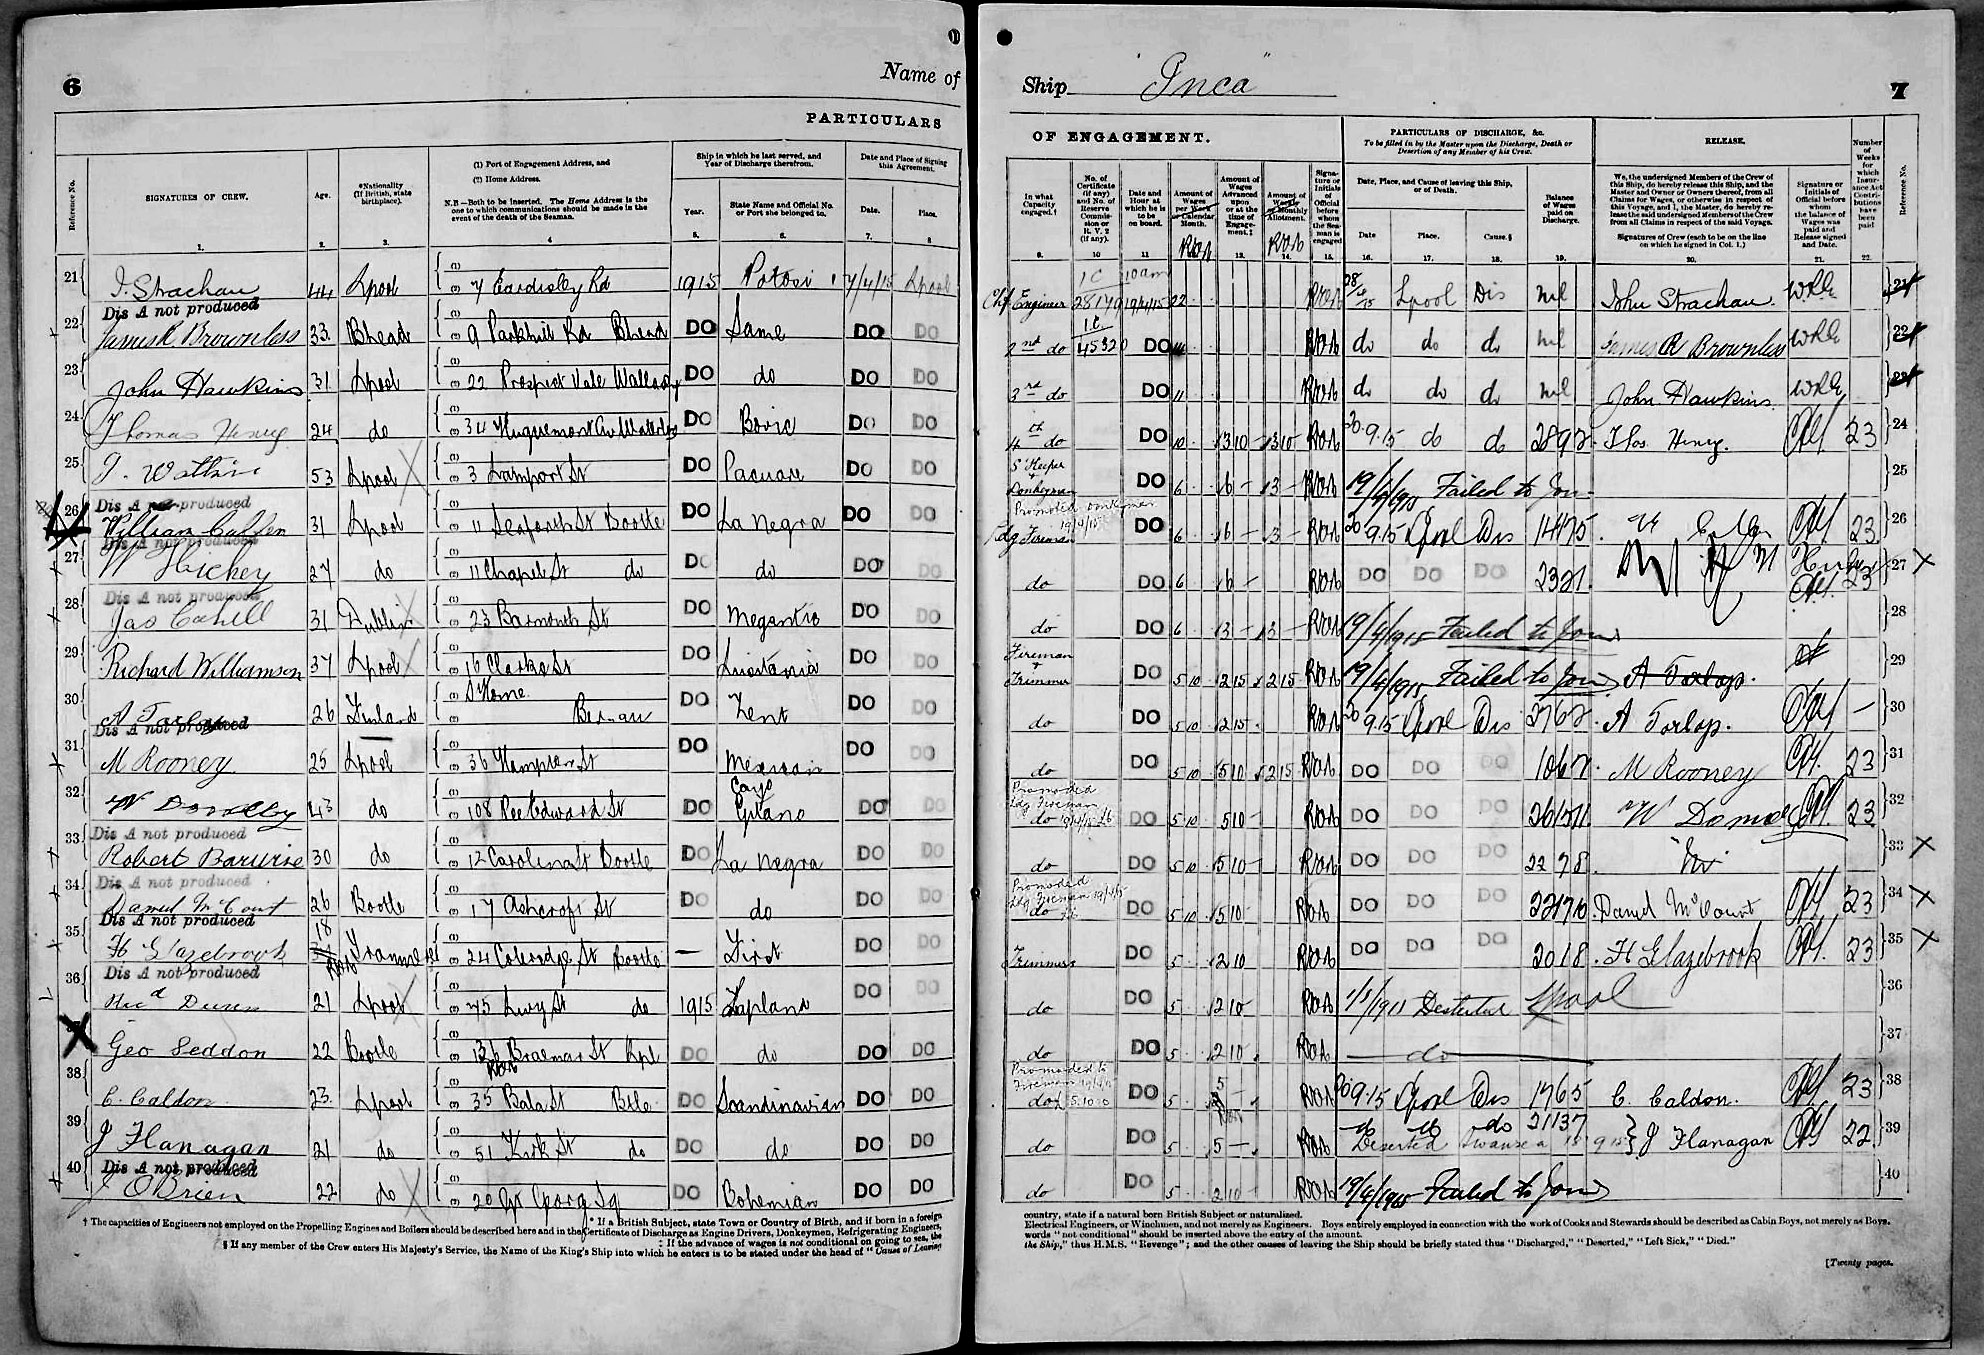 6
Name of
PARTICULARS
Reference No.
SIGNATURES OF CREW.
Age.
*Nationality (If British, state birthplace).
(1) Port of Engagement Address, and
(2) Home Address.
N.B.—Both to be inserted. The Home Address is the one to which communications should be made in the event of the death of the Seaman.
Ship in which he last served, and Year of Discharge therefrom.
Year.
State Name and Official No. or Port she belonged to.
Date and Place of Signing this Agreement.
Date.
Place.
1. 2. 3. 4 5. 6. 7. 8
21 J. Strachan 44 Lpool 7 Eardisley Rd 1915 Potosi 7/4/15 Lpool
Dis A not produced
22 James R Brownless 33 Bhead 9 Parkhill Rd Bhead DO Same DO DO
23 John Hawkins 31 Lpool 22 Prospect Vale Wallasey DO do DO DO
24 Thomas Henry 24 do 34 Av Waterloo DO Bovic DO DO
25 53 Lpool 3 Lamport St DO Pacuare DO DO
Dis A produced
26 William 31 Lpool 11 Seaforth St Bootle DO La Negra DO DO
Dis A not produced
27 W Hickey 27 do 11 Chapel St do DO do DO DO
Dis A not produced
28 Jas Cahill 31 Dublin 23 St DO Megantic DO DO
29 Richard Williamson 37 Lpool 16 Clarke St DO Lusitania DO DO
30 A 26 Finland S Home DO Kent DO DO
Dis A not produced
31 M Rooney 25 Lpool 36 Hampton St DO Mexican DO DO
32 W 43 do 108 Edward St DO Gitano DO DO
Dis A not produced
33 Robert Barwise 30 do 12 Carolina St Bootle DO La Negra DO DO
Dis A not produced
34 Daniel McCourt 26 Bootle 17 Ashcroft St DO do DO DO
Dis A not produced
35 H Glazebrook 18 Tranmere 24 Coleridge St Bootle — First DO DO
Dis A not produced
36 21 Lpool 45 Lucy St do 1915 Lapland DO DO
37 Geo Seddon 22 Bootle 136 Braemar St Lpl DO do DO DO
38 C. Caldon 23 Lpool 35 Bala St Btle DO Scandinavian DO DO
39 J Flanagan 21 do 51 Kirk St do DO do DO DO
Dis A not produced
40 J OBrien 22 do 20 Gt Georg Sq DO Bohemian DO DO
† The capacities of Engineers not employed on the Propelling Engines and Boilers should be described here and in the
* If a British Subject, state Town or Country of Birth, and if born in a foreign
Certificate of Discharge as Engine Drivers, Donkeymen, Refrigerating Engineers,
‡ If the advance of wages is not conditional on going to sea, the
§ If any member of the Crew enters His Majesty's Service, the Name of the King's Ship into which he enters is to be stated under the head of "Cause of Leaving
Ship "Inca"
7
OF ENGAGEMENT.
PARTICULARS OF DISCHARGE, &c.
To be filled in by the Master upon the Discharge, Death or Desertion of any Member of his Crew.
RELEASE.
In what Capacity engaged.†
No. of Certificate (if any) and No. of Reserve Commission or R. V. 2 (if any).
Date and Hour at which he is to be on board.
Amount of Wages per Week or Calendar Month.
Amount of Wages Advanced upon or at the time of Engagement.‡
Amount of Weekly or Monthly Allotment.
Signature or Initials of Official before whom the Seaman is engaged
Date, Place, and Cause of leaving this Ship, or of Death.
Date Place. Cause.§
Balance of Wages paid on Discharge.
We, the undersigned Members of the Crew of this Ship, do hereby release this Ship, and the Master and Owner or Owners thereof, from all Claims for Wages, or otherwise in respect of this Voyage, and I, the Master, do hereby release the said undersigned Members of the Crew from all Claims in respect of the said Voyage.
Signatures of Crew (each to be on the line on which he signed in Col. 1.)
Signature or Initials of Official before whom the balance of Wages was paid and Release signed and Date.
Number of Weeks for which Insurance Act Contributions have been paid
Reference No.
9. 10 11 12. 13. 14. 15. 16. 17. 18. 19. 20. 21. 22.
Chf Engineer 1C 28179 10 am 19/4/15 22 28/4/15 Lpool Dis nil John Strachan 21
2nd do 1C 45320 DO do do do nil James R Brownless 22
3rd do DO 11 do do do nil John Hawkins 23
4th do DO 10 13 10 13 10 20 9.15 do do Thos. Henry. 23 24
S'Keeper + Donkeyman DO 6 6 3 19/4/1915 Failed to Join 25
Promoted Donkeyman 19/4/15
Ldg Fireman DO 6 6 3 20 9.15 Lpool Dis 23 26
do DO 6 6 DO DO DO 23 27
do DO 6 3 3 19/4/1915 Failed to Join 28
Fireman + Trimmer DO 5 10 2 15 2 15 19/4/1915 Failed to Join A Torlop. 29
do DO 5 10 2 15 20 9.15 Lpool Dis A Torlop. — 30
do DO 5 10 5 10 2 15 DO DO DO M Rooney 23 31
Promoted Ldg Fireman
do DO 5 10 5 10 DO DO DO W 23 32
do DO 5 10 5 10 DO DO DO 22 7 8 33
Promoted Ldg Fireman 19/4/15
do DO 5 10 5 10 DO DO DO Daniel McCourt 23 34
Trimmer DO 5 2 10 DO DO DO 20 1 8 H Glazebrook 23 35
do DO 5 2 10 Deserted Lpool 36
do DO 5 2 10 do 37
Promoted to Fireman 19/4/15
do 5.10.0 DO 5 5 20 9.15 Lpool Dis 17 6 5 C. Caldon. 23 38
do do do
do DO 5 5 Deserted Swansea J Flanagan 22 39
do DO 5 2 10 19/4/1915 Failed to Join 40
country, state if a natural born British Subject or naturalized.
Electrical Engineers, or Winchmen, and not merely as Engineers. Boys entirely employed in connection with the work of Cooks and Stewards should be described as Cabin Boys, not merely as Boys.
words "not conditional" should be inserted above the entry of the amount.
the Ship," thus H.M.S. "Revenge"; and the other causes of leaving the Ship should be briefly stated thus "Discharged," "Deserted," "Left Sick," "Died."
[Twenty pages.